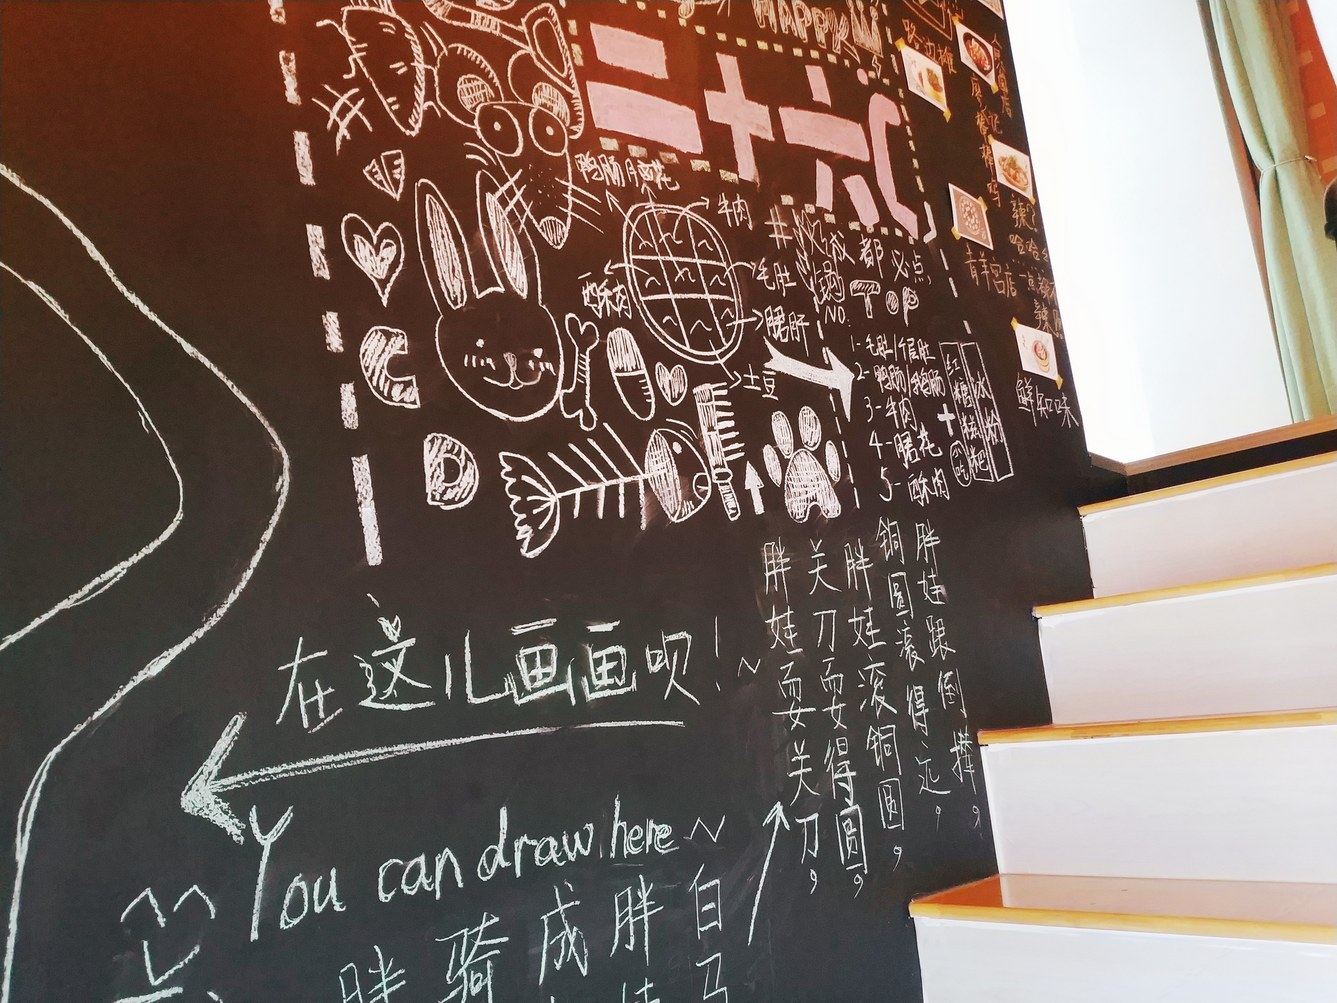 HAPPY
二十六
路边摊
鸭肠
腰花
牛肉
毛肚
酥肉
腰肝
土豆
火锅
都必点
NO.
TOP
1-毛肚/千层肚
2-鸭肠/鹅肠
3-牛肉
4-腰花
5-酥肉
+
红糖糍粑
冰粉
青羊宫店
鲜知味
C
D
在这儿画画呗!~
You can draw here~
胖娃耍关刀,
关刀耍得圆,
胖娃滚铜圆,
铜圆滚得远,
胖娃跟倒撵。
胖
骑
成
胖
白马